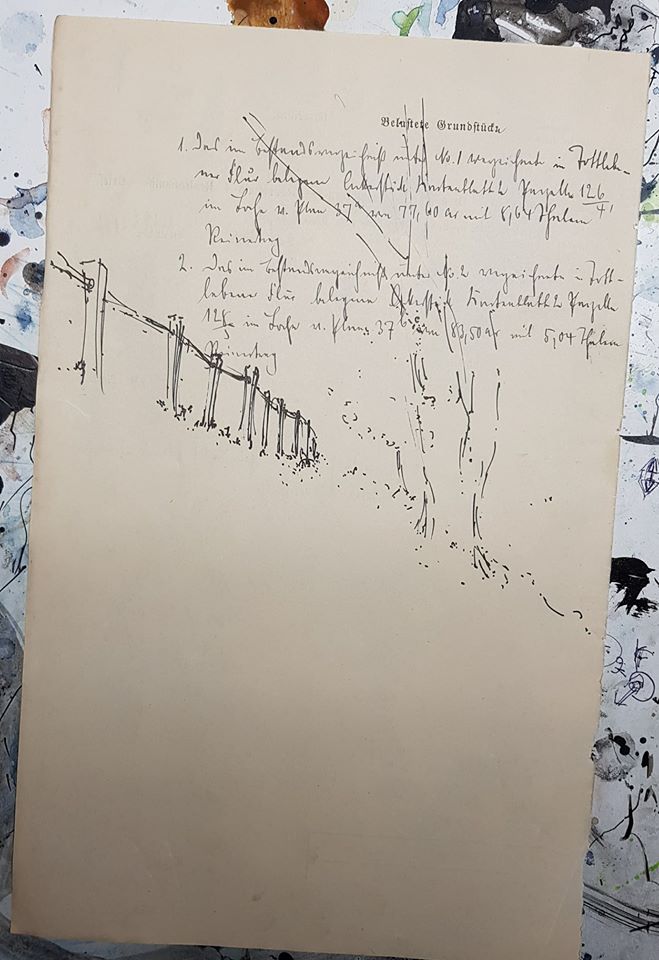 Belastete Grundstücke
1. Das im Bestandsverzeichniß unter No. 1 verzeichnete in Tottlebe-
ner Flur belegene Ackerstück Kartenblatt 2 Parzelle 126/4,
im Lohe v. Plan 37a von 77,60 ar mit 8,64 Thalern
Reinertrag
2. Das im Bestandsverzeichniß unter No 2 verzeichnete in Tott-
lebener Flur belegene Ackerstück Kartenblatt 2 Parzelle
im Lohe v. Plan 37 von 83,50 ar mit 5,04 Thalern
Reinertrag